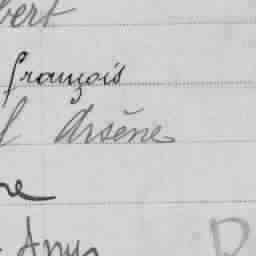 bert
françois
l Arsène
re